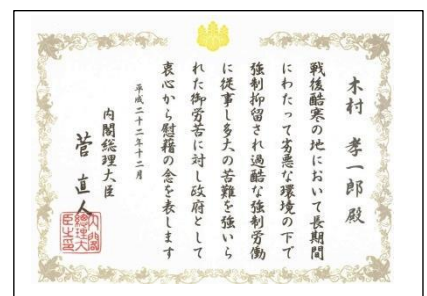 木村 孝一郎 殿
戦後酷寒の地において長期間
にわたって劣悪な環境の下で
強制抑留され過酷な強制労働
に従事し多大の苦難を強いら
れた御労苦に対し政府として
衷心から慰藉の念を表します
平成二十二年十二月
内閣総理大臣
菅 直人
内閣総理大臣之印